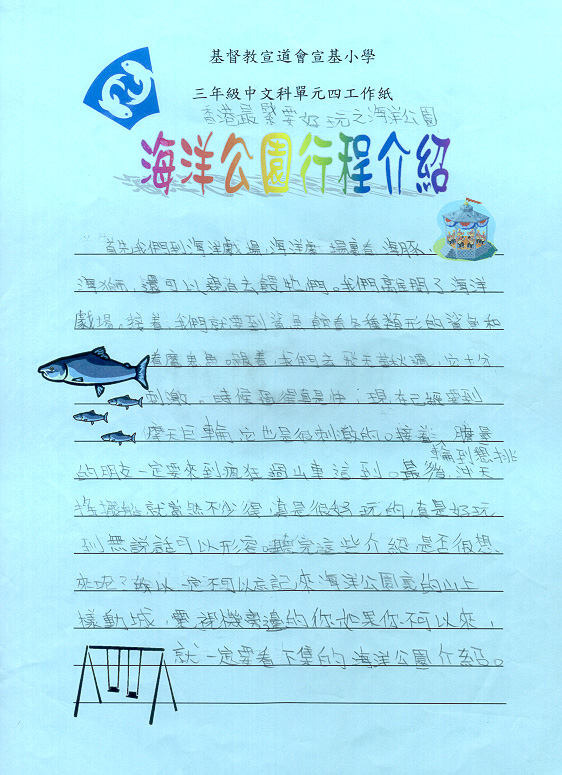 基督教宣道會宣基小學
三年級中文科單元四工作紙
香港最緊要好玩之海洋公園
海洋公園行程介紹
首先我們到海洋劇場,海洋劇場裏有海豚、
海獅,還可以親自去餵牠們。我們離開了海洋
劇場,接着,我們就要到鯊魚館看各種類形的鯊魚和
看魔鬼魚。跟着,我們去飛天鞦韆,它十分
刺激。時候過得真是快,現在已經要到
摩天巨輪,它也是很刺激的。接着,膽量
輪到想挑
的朋友一定要來到瘋狂過山車這到。最後,沖天
搖擺船就當然不少得,真是很好玩的,真是好玩
到無說話可以形容。聽完這些介紹是否很想
來呢?所以一定不可以忘記來海洋公園裏的山上
樣動城,電視機旁邊的你如果你不可以來,
就一定要看下集的海洋公園介紹。